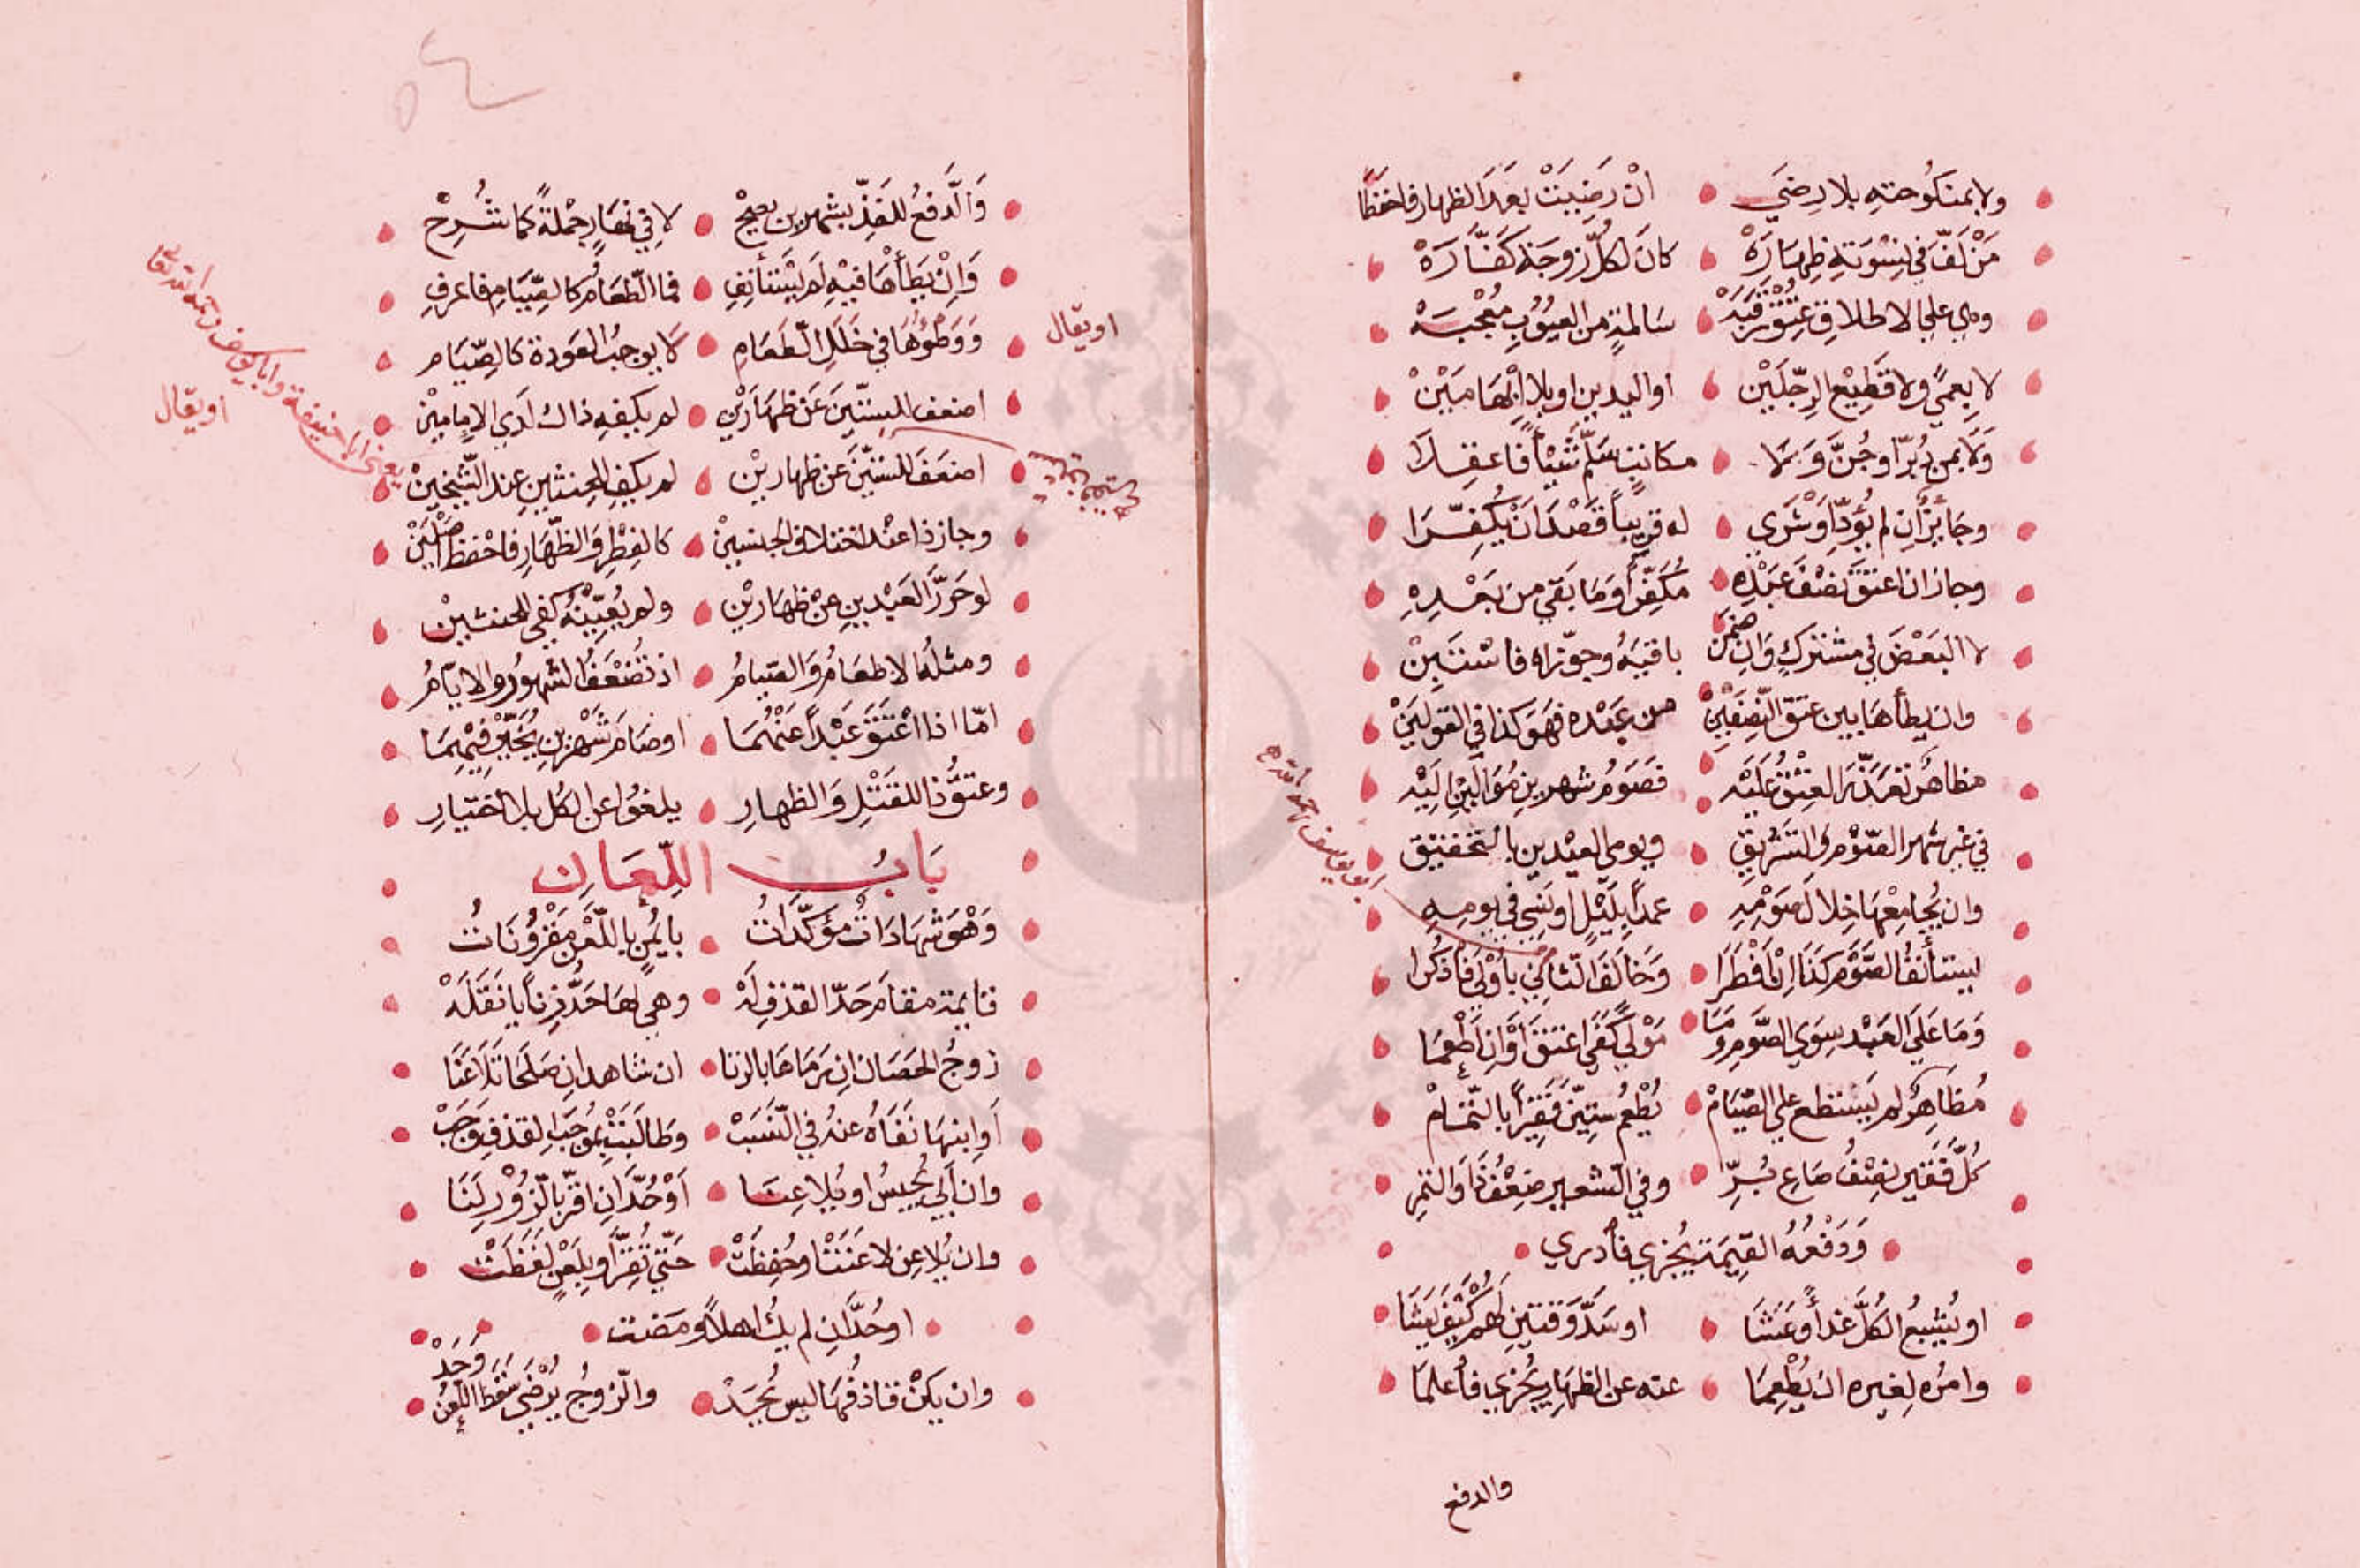 ولا بمنكوحته بلا رضَي أنْ رَضِيَتْ بعَدَ الظهار فاحفظَا
مَنْ لَفَّ في نِسْوَتهِ ظِهارَهْ كانَ لكلِّ زوجَة كَفَّارَهْ
وهي على الاطلاق عِتْقُ رَقَبَهْ سَالمةٍ من العيُوُبِ مُعْجبَهْ
لا بعميً ولا قَطِيْع الرِجّلَيْن او اليدين او بلا إبْهَامَيْنْ
وَلا بمن دُبرّ او جُنَّ وَلا مكاتبٍ سَلّمَ شَيْأً فاعقِلا
وجَايِزٌ ان لم يُؤدِّ أوْ شَرَي له قريباً قَصْدَ اَنْ يُكفِّرَا
وجاز ان اعتقَ نصْفَ عَبْدِهِ مُكَفِّراً وَمَا بَقي من بَعْدِهِ
لا البَعْضَ في مشتركٍ وَانِ ضمَن باقيَهُ وجوّزاه فاسْتَبِنْ
وان يطأهَا بين عتق النّصْفَيْن من عَبْده فهَوَ كذا في القولَيَنْ
مظاهرٌ تعَذّرَ العِتْقُ عَلَيْه فصَوْمُ شهرينِ مُوَالَيْنِ الَيْه
في غير شهر الصّوْم وَالتشْرِيقِ ويومي العيْدين بالتحقيق
وان يُجامِعْهَا خِلالَ صَوْمِهِ عمداً بلَيْلٍ او نسِي في يومِهِ
ليستأنفُ الصَّوْمَ كَذَا انْ اَفْطَرَا وَخَالَفَ الثاني بأوْلي فاذكُرا
وَمَا عَلَي العَبْد سِوَي الصّوم ومَا مَوْليً كَفَي اعتقَ أوْ ان أطْعمَا
مُظَاهِرٌ لم يَسْتطع علي الصّيَامْ يُطْعِمُ ستيّنَ فَقِيراً بالتّمَامْ
كُلَّ فَقَيرٍ نصِفُ صَاعِ بُرِّ وفي الشعير ضِعْفُ ذَا وَالتمرِ
وَدَفْعُهُ القِيمَة يُجْزي فأدري
او يُشبعُ الكُلَّ غداً وعَشَا او سَدَّ وَقتينِ لَهُم كَيْفَ يَشَا
وامرُه لِغيره ان يُطْعِمَا عنه عن الظهَارِ يُجْزي فأعلمَا
والدفع
وَالَّدفعُ للفَذِّ بشهرين يصِحْ لا في نهَارٍ جُملةً كما شُرِحْ
وَانِ يَطَأْهَا فيْهِ لَم يَسْتَأنِفِ فما الطّعَامُ كالصِّيَامِ فاعرفِ
وَوَطْؤُهَا في خَلَلِ الطّعَامِ لا يوجبُ العَودة كالصّيَام
او يقال
اضعف الستّينَ عَن ظهَارَيْنِ لم يكفِهِ ذاك لَدَي الامامِيْن
او يقال
اضعَفَ للستّيَنَ عن ظهارينْ لم يكفِ الحِنثين عند الشّيخينْ
يعني ابا حنيفة وابا يوسف رحمهما الله تعا
وجاز ذا عنْد اختلاف الجنسينْ كالفِطْرِ والظّهَارِ فاحْفظ أصْلَيْن
لو حَرَّرَ العَبْدينِ عنْ ظهَارَيْن ولم يُعَيّنْهُ كفي للحنثيْن
ومثلُهُ الاطعَامُ وَالصّيامُ اذ تُضْعَفُ الشهورُ والايّامُ
امّا اذا اعْتَقَ عَبْداً عَنْهُمَا او صَامَ شَهْرينِ يُعَيِّنْ فيْهِمَا
وعتقُ ذا للقَتْلِ وَالظهارِ يلغوُا عن الكُل بلا اختيارِ
بَابُ اللّعَان
وَهْوَ شهَادَاتٌ مؤكَّدَاتُ بايْمُنٍ باللّعْن مَقْرُوْنَاتُ
قايمة مقامَ حَدّ القذفِ لَهْ وهي لهَا حَدُّ زِناً يا نَقَلَهْ
زوجُ الحَصَان ان رَمَاهَا بالزنا ان شاهدان صَلَحَا تلاعَنَا
اَو ابنهَا نَفَاهُ عنهُ في النَّسَبْ وطَالَبَتْ بموُجَبِ القذفِ وَجَبْ
وان أبَي يُحبسُ او يُلاعِنَا أوْ حُدّ ان اقرّ بالزُوْرِ لَنَا
وان يُلاعِن لاعَنَتْ او حُفِظَتْ حَتّي تُقِرَّ او بِلَعْنٍ لَفَظَتْ
او حُدَّ ان لم يكُ اهلاً ومَضت
وان يكنْ قاذفُهَا ليس يُحَدْ والزوجُ يُرْضَي سَقَطَ اللّعْنُ وَحَدْ